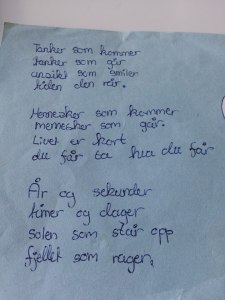 Tanker som kommer
tanker som går
ansikt som smiler
tiden den rår.
Mennesker som kommer
mennesker som går.
Livet er kort
du får ta hva du får
År og sekunder
timer og dager
solen som står opp
fjellet som rager.